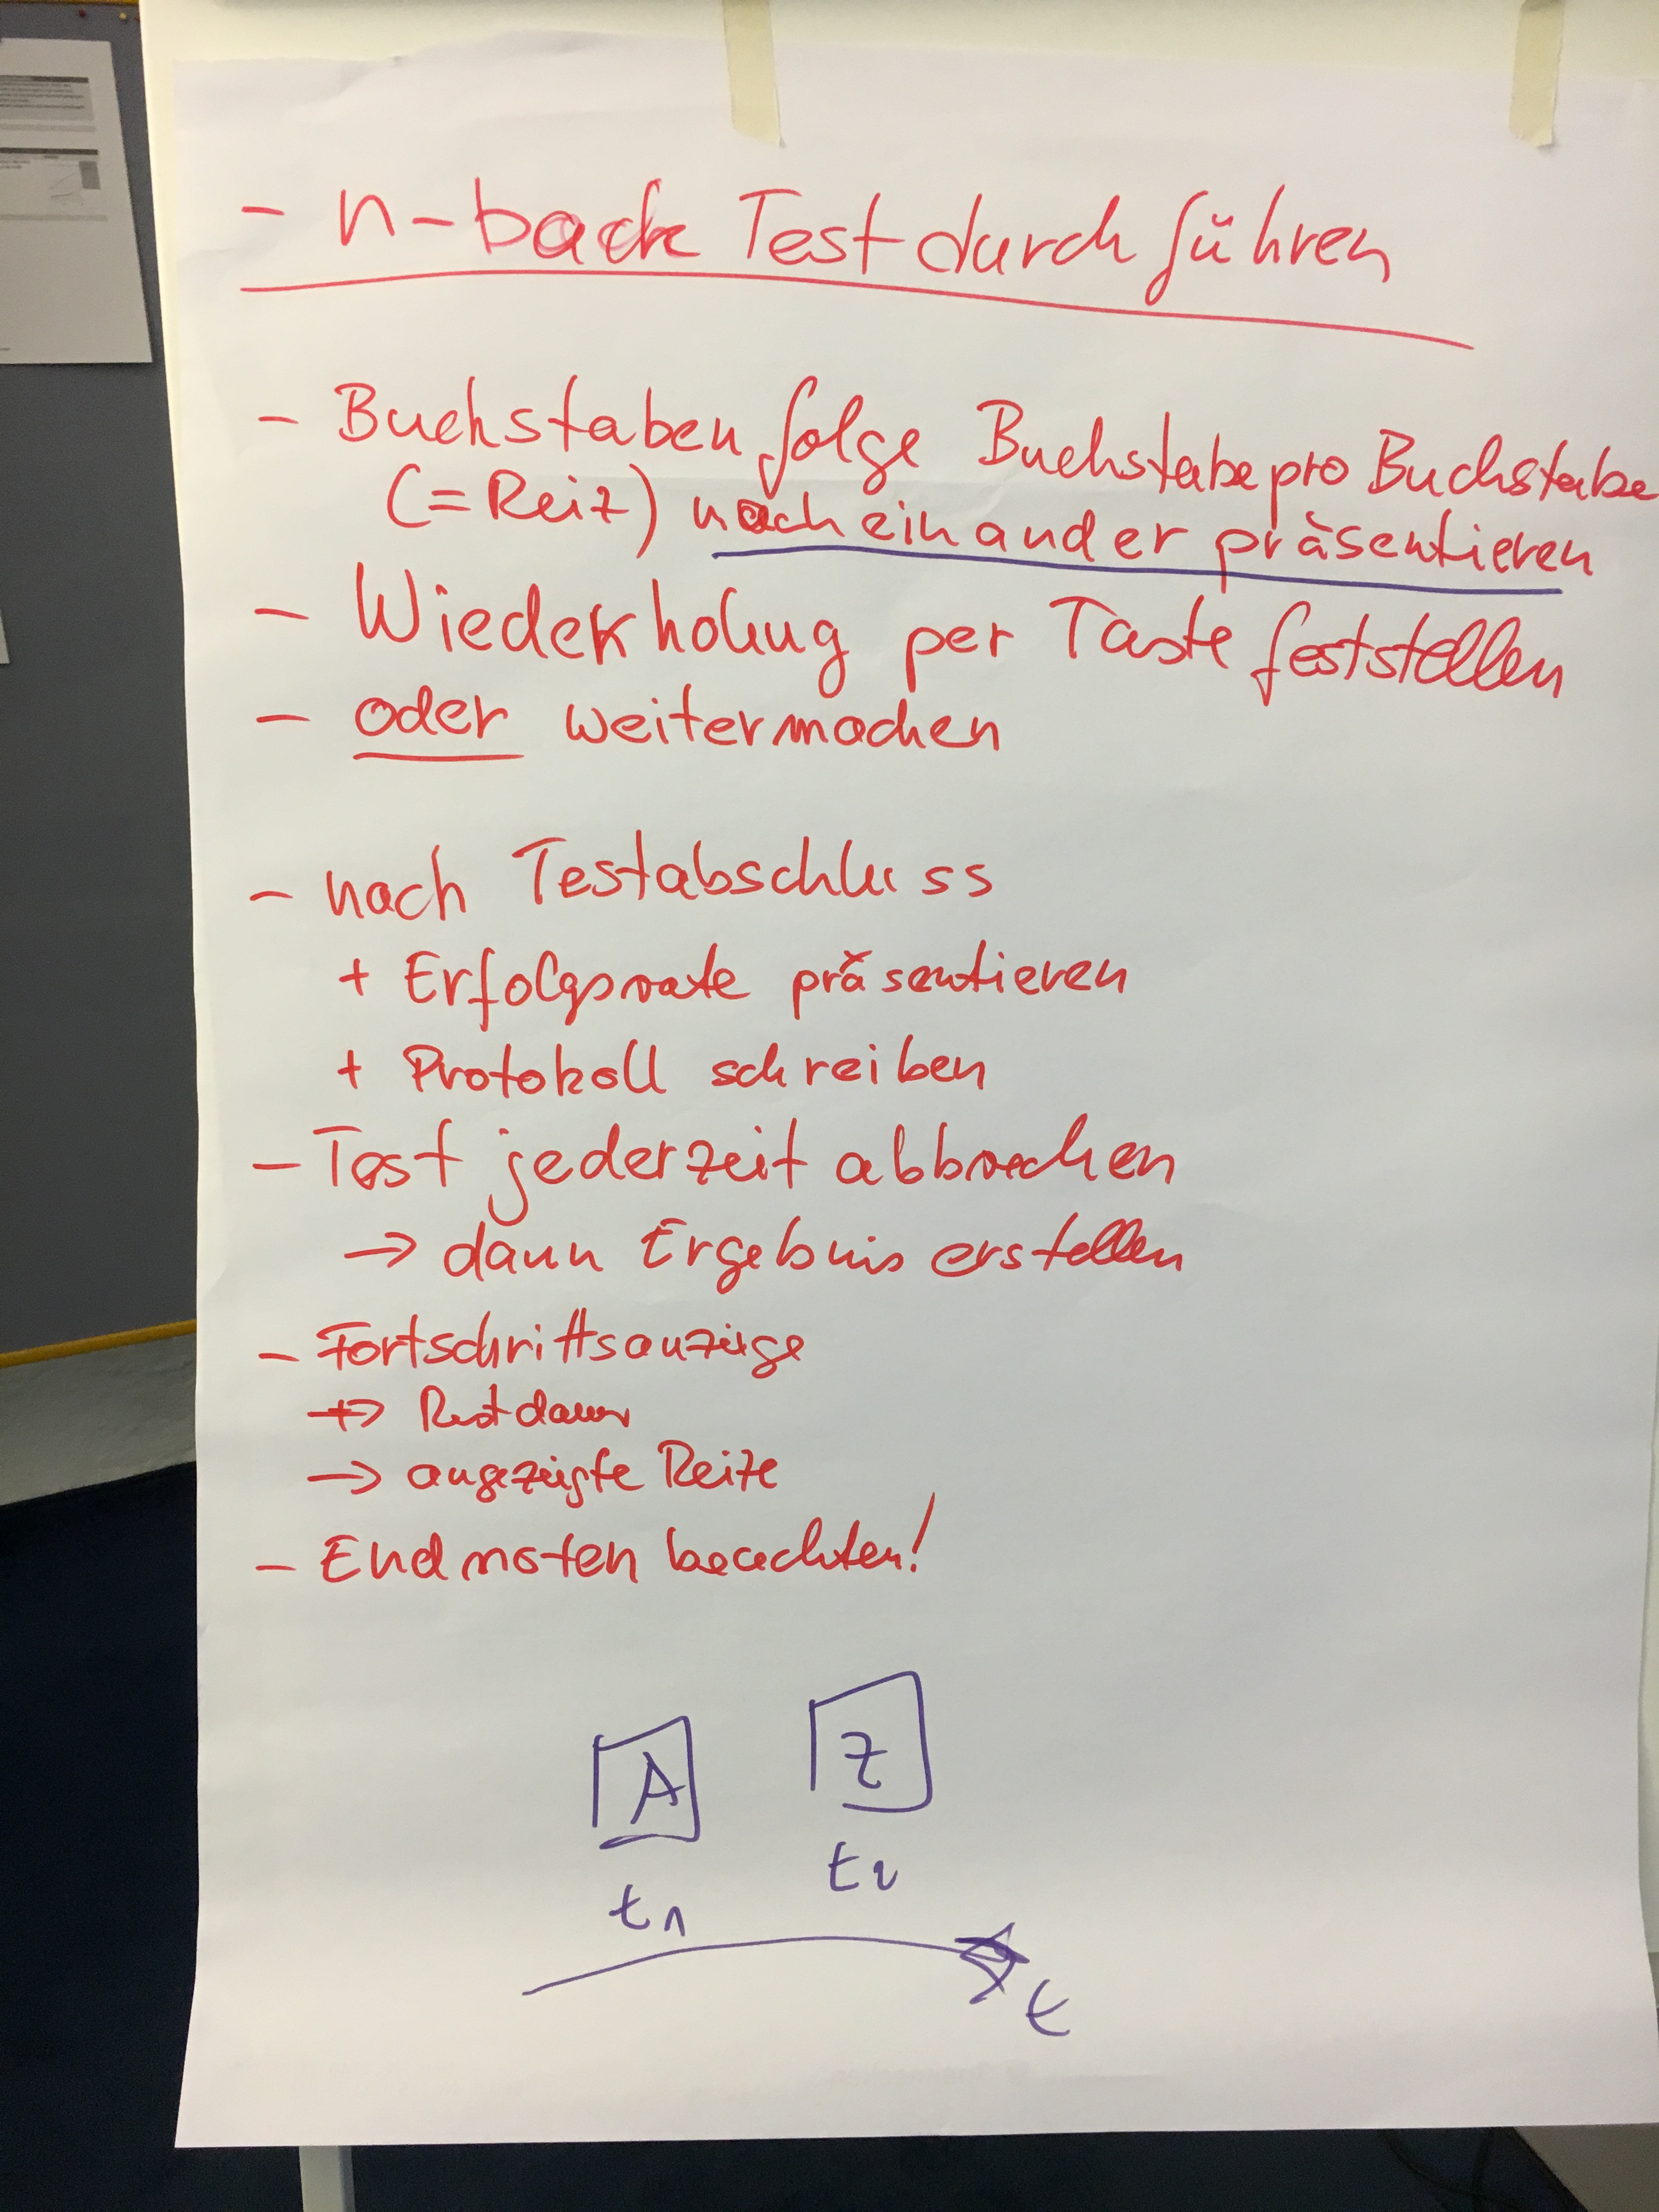 - n-back Test durchführen
- Buchstabenfolge Buchstabe pro Buchstabe
(=Reiz) nacheinander präsentieren
- Wiederholung per Taste feststellen
- oder weitermachen
- nach Testabschluss
+ Erfolgsrate präsentieren
+ Protokoll schreiben
- Test jederzeit abbrechen
→ dann Ergebnis erstellen
- Fortschrittsanzeige
→ Restdauer
→ angezeigte Reize
- Endmasten beachten!
A
Z
t1
t2
t